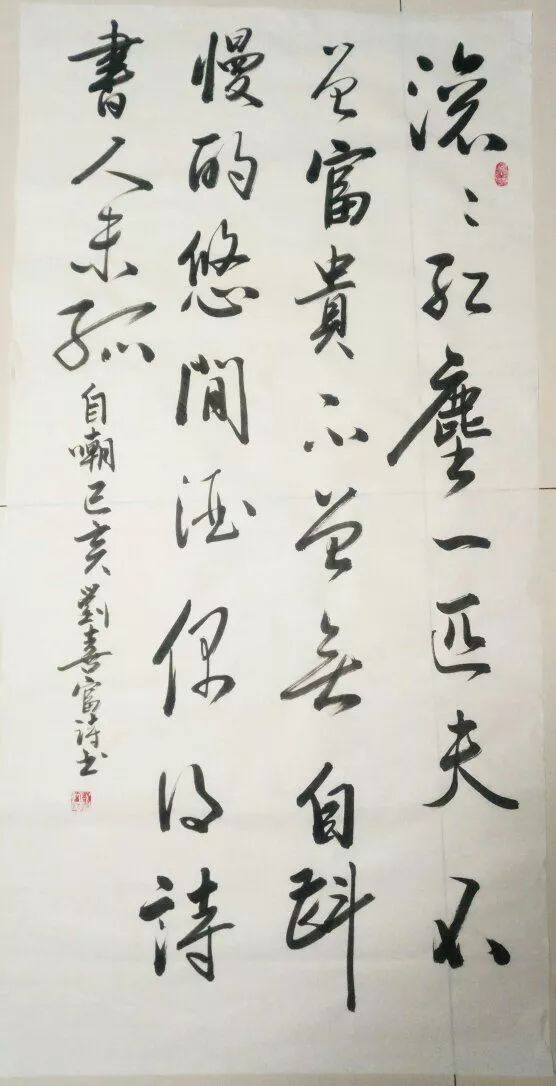 滾〻紅塵一匹夫不
曾富貴不曾無自斟
慢酌悠閒酒偶得詩
書人未孤自嘲己亥劉喜富詩书